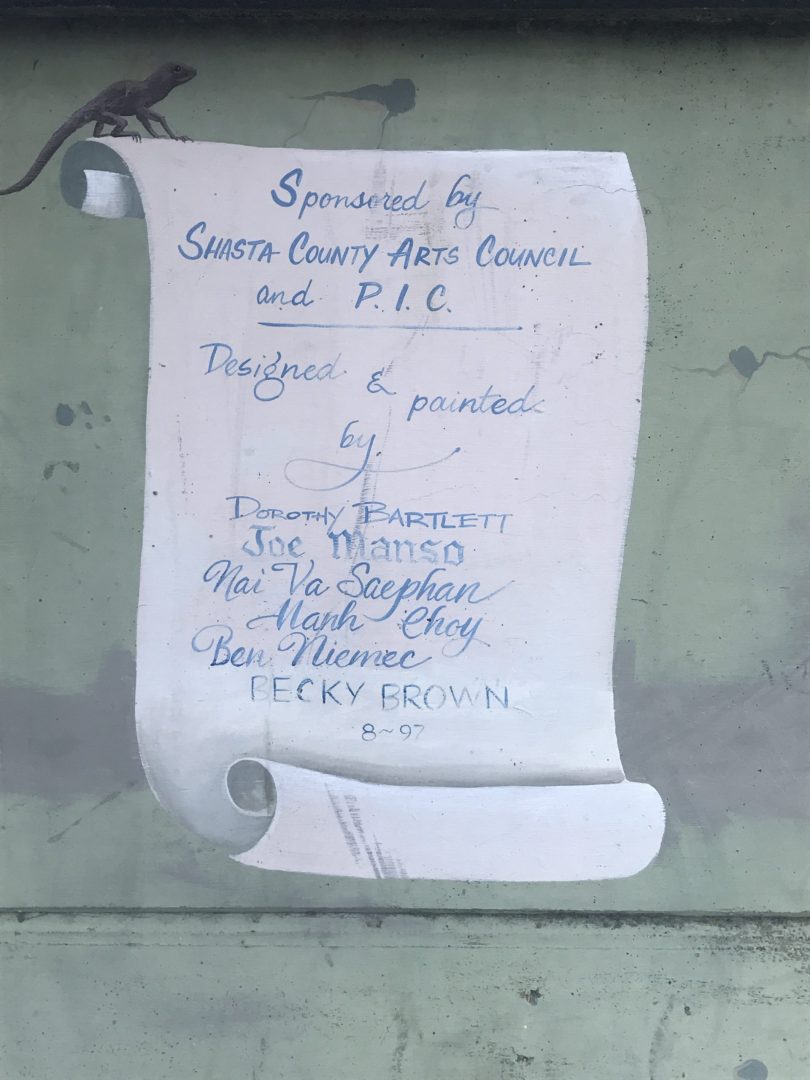 Sponsored by
SHASTA COUNTY ARTS COUNCIL
and P.I.C.
Designed & painted
by
DOROTHY BARTLETT
Joe Manso
Nai Va Saephan
Manh Choy
Ben Niemec
BECKY BROWN
8~97